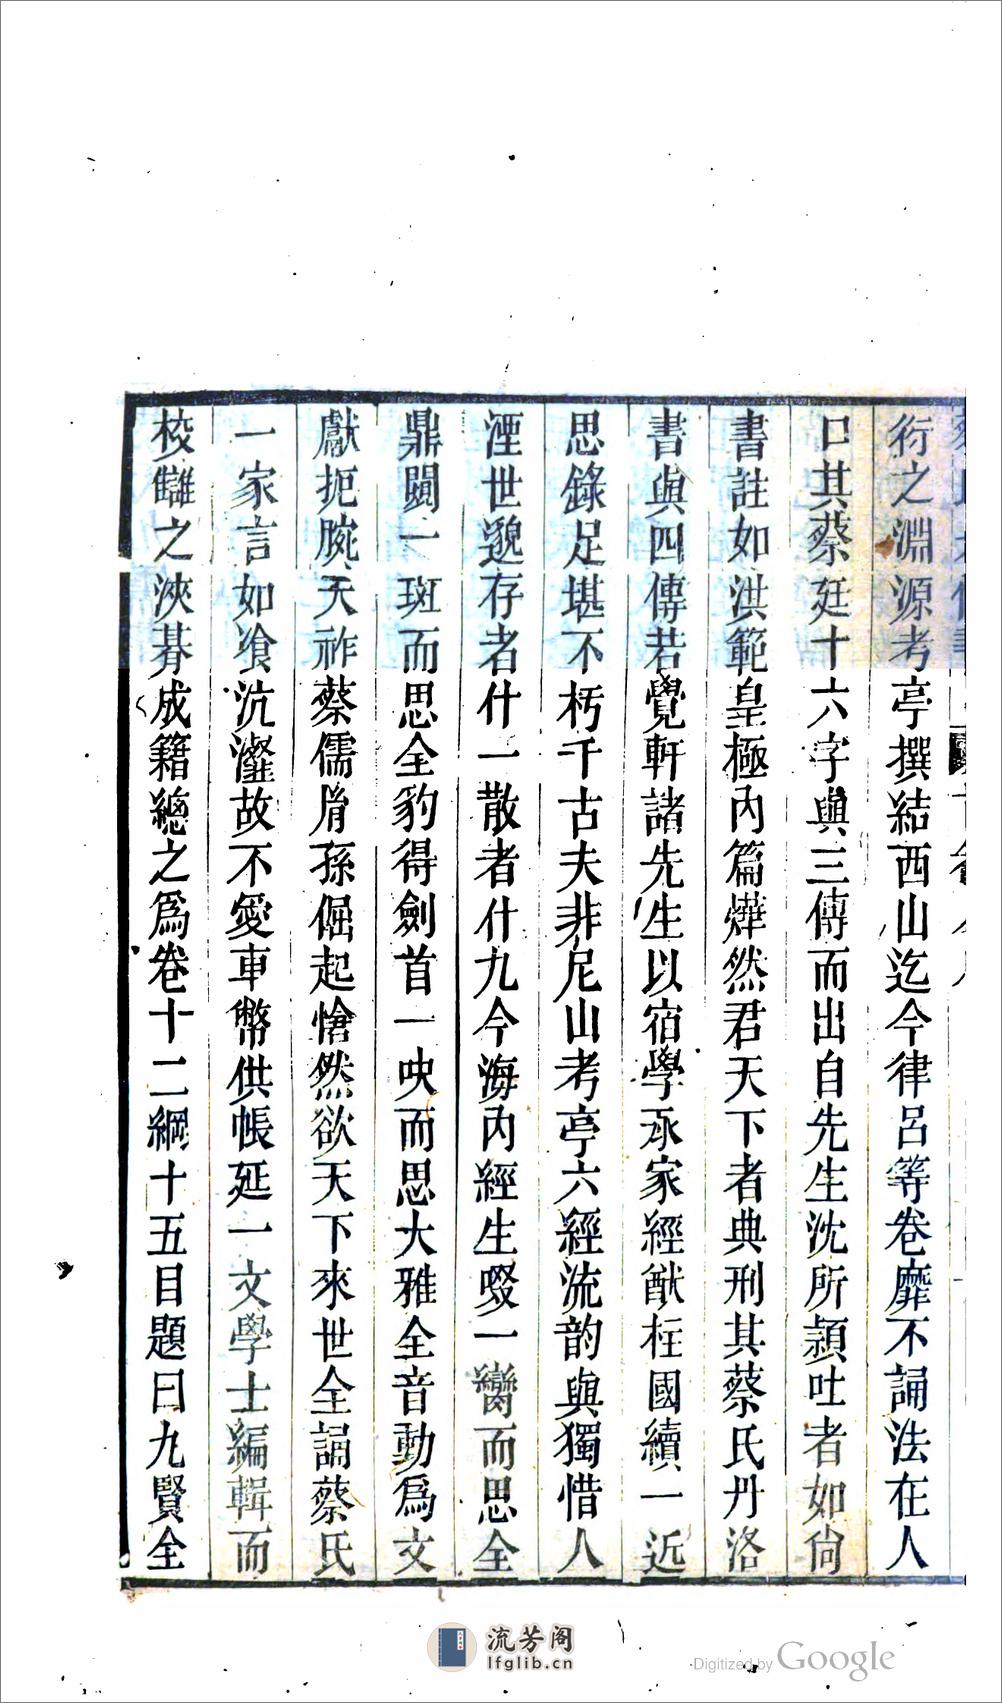 衍之淵源考亭撰結西山迄今律呂等卷靡不誦法在人
口其蔡廷十六字與三傳而出自先生沈所潁吐者如尙
書註如洪範皇極內篇燁然君天下者典刑其蔡氏丹洛
書與四傳若覺軒諸先生以宿學承家經猷柱國續一近
思錄足堪不朽千古夫非尼山考亭六經流韵與獨惜人
湮世邈存者什一散者什九今海內經生啜一臠而思全
鼎闚一斑而思全豹得劍首一吷而思大雅全音動爲文
獻扼腕天祚蔡儒脋孫倔起愴然欲天下來世全誦蔡氏
一家言如飡沆瀣故不愛車幣供帳延一文學士編輯而
校讎之浹朞成籍總之爲卷十二綱十五目題曰九賢全
流芳阁
lfglib.cn
Digitized by Google